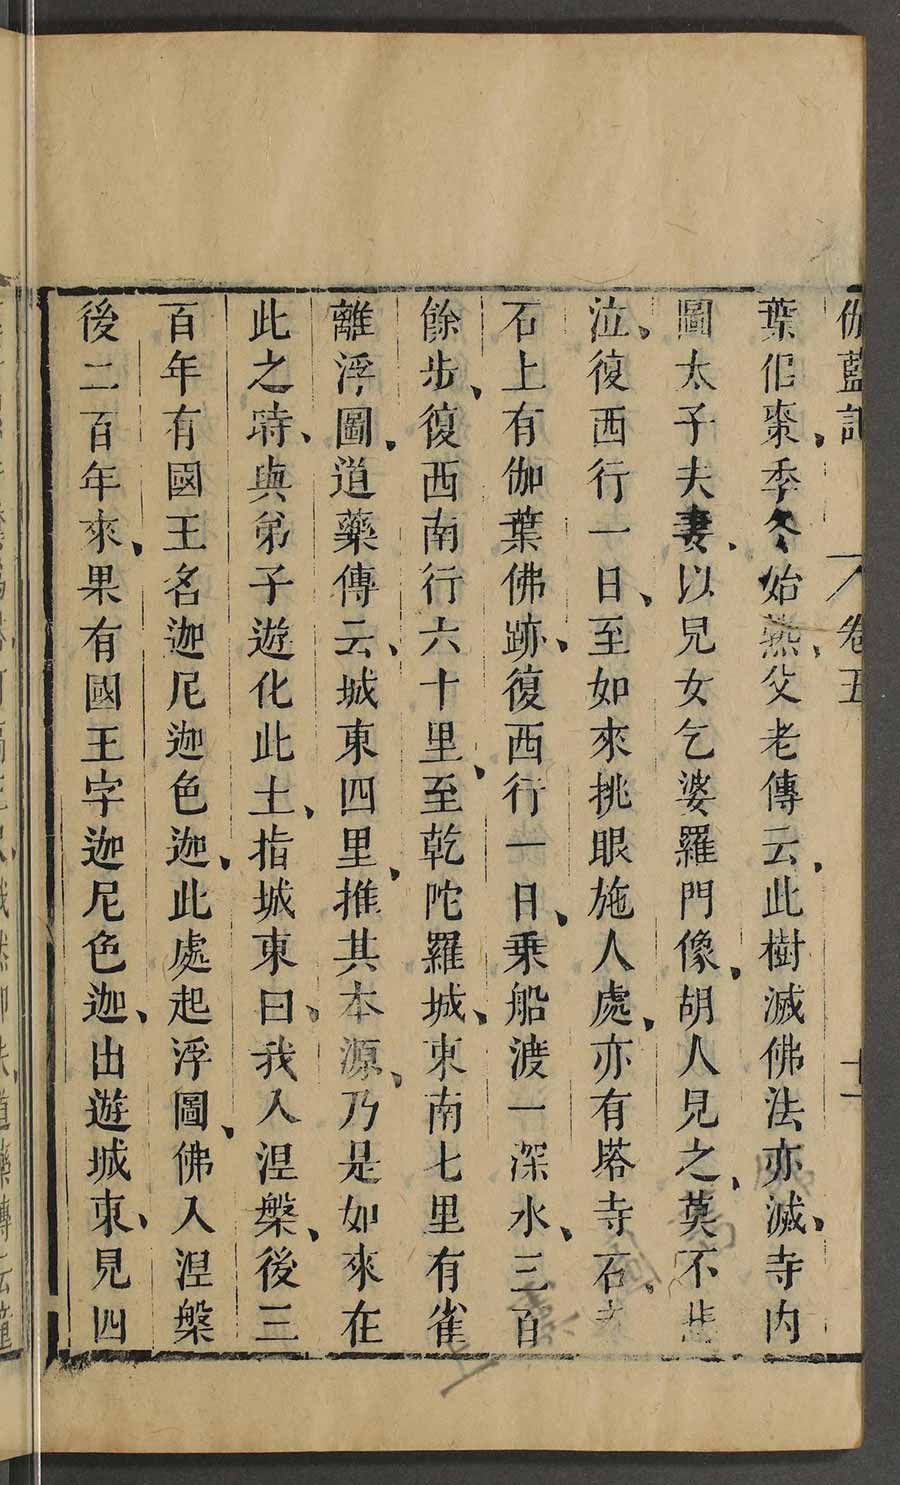 伽藍記 卷五 十一
葉似棗、季冬始熟、父老傳云、此樹滅佛法亦滅、寺内
圖太子夫妻、以兒女乞婆羅門像、胡人見之、莫不悲
泣、復西行一日、至如來挑眼施人處、亦有塔寺、寺石
石上有伽葉佛跡、復西行一日、乗船渡一深水、三百
餘步、復西南行六十里、至乾陀羅城、東南七里有雀
離浮圖、道藥傳云、城東四里、推其本源、乃是如來在
此之時、與弟子遊化此土、指城東曰、我入涅槃、後三
百年有國王名迦尼迦色迦、此處起浮圖、佛入涅槃
後二百年來、果有國王字迦尼色迦、出遊城東、見四